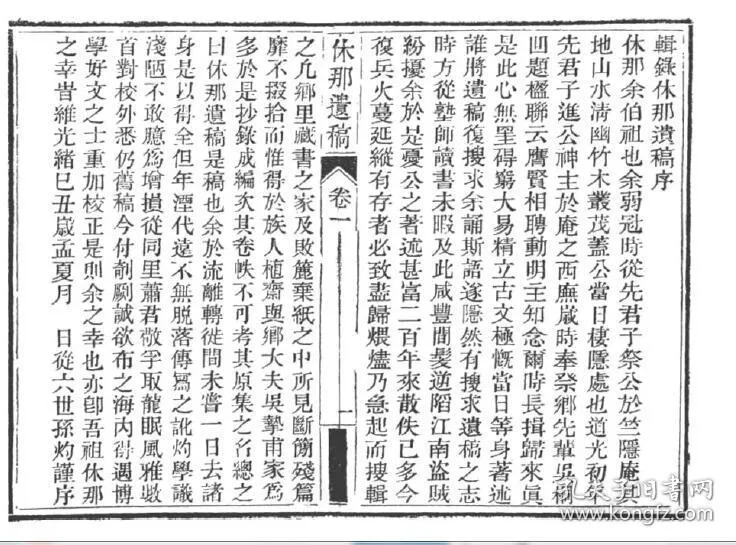 輯錄休那遺稿序
休那余伯祖也余弱冠時從先君子祭公於竺隱庵其
地山水清幽竹木叢茂蓋公當日棲隱處也道光初
先君子進公神主於庵之西廡嵗時奉祭鄉先輩吳
凹題楹聯云鷹賢相聘動明主知念爾時長揖歸來眞
是此心無罣碍窮大易精立古文極慨當日等身著述
誰將遺稿復搜求余誦斯語遂隱然有搜求遺稿之志
時方從塾師讀書未暇及此咸豐間髮逆陷江南盜賊
紛擾余於是憂公之著述甚富二百年來散佚已多今
復兵火蔓延縱有存者必致盡歸煨燼乃急起而搜輯
休那遺稿 卷一 一
之凡鄉里藏書之家及敗簏棄紙之中所見斷簡殘篇
靡不掇拾而惟得於族人植齋與鄉大夫吳摯甫家爲
多於是抄錄成編次其卷帙不可考其原集之名總之
曰休那遺稿是稿也余於流離轉徙間未嘗一日去諸
身是以得全但年湮代遠不無脫落傳寫之訛灼學識
淺陋不敢臆爲增損從同里蕭君敬孚取龍眠風雅數
首對校外悉仍舊稿今付剞劂誠欲布之海內得遇博
學好文之士重加校正是則余之幸也亦卽吾祖休那
之幸旹維光緒巳丑嵗孟夏月 日從六世孫灼謹序
孔夫子旧书网
www.kongfz.com